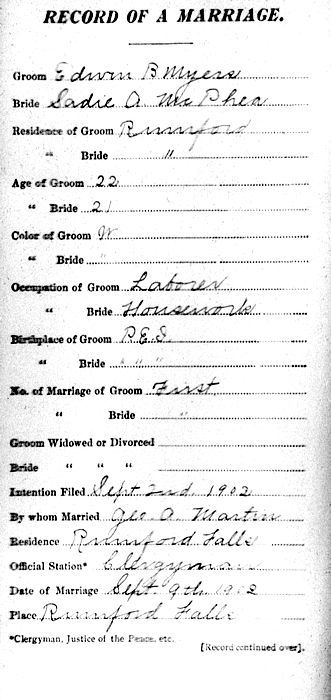 RECORD OF A MARRIAGE.
Groom Edwin B Myers
Bride Sadie A. McPhea
Residence of Groom Rumford
" Bride "
Age of Groom 22
" Bride 21
Color of Groom W
" Bride "
Occupation of Groom Laborer
" Bride Housework
Birthplace of Groom P.E.I.
" Bride " " "
No. of Marriage of Groom First
" Bride "
Groom Widowed or Divorced
Bride " " "
Intention Filed Sept 2nd. 1902
By whom Married Geo. A. Martin
Residence Rumford Falls
Official Station* Clergyman
Date of Marriage Sept. 9th. 1902
Place Rumford Falls
*Clergyman, Justice of the Peace, etc.
[Record continued over].